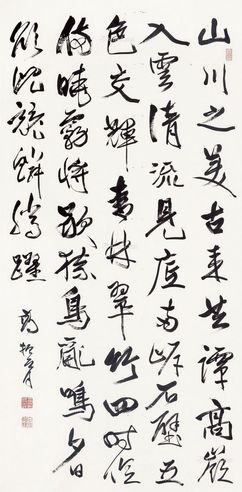 山川之美古來共譚高嶺
入雲清流見底兩岸石壁五
色交輝青林翠竹四時俱
備曉霧將歇猿鳥亂鳴夕日
欲頹競鱗騰躍